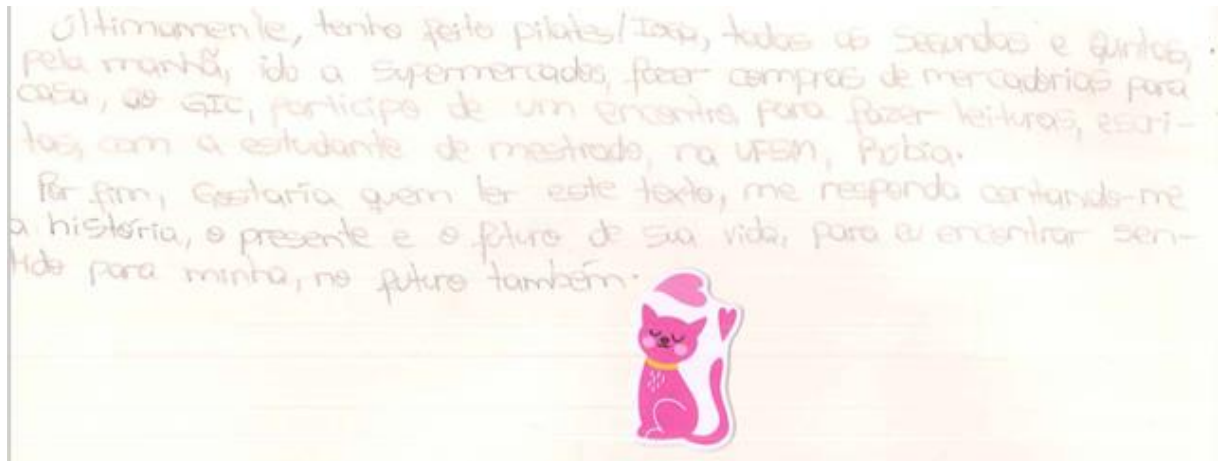 Ultimamente, tenho feito pilates/Ioga, todas as segundas e quintas,
pela manhã, ido a supermercados, fazer compras de mercadorias para
casa, ao GIC, participo de um encontro para fazer leituras, escri-
tas, com a estudante de mestrado, na UFSM,
Por fim, Gostaria quem ler este texto, me responda contando-me
a história, o presente e o futuro de sua vida, para eu encontrar sen-
tido para minha, no futuro também.